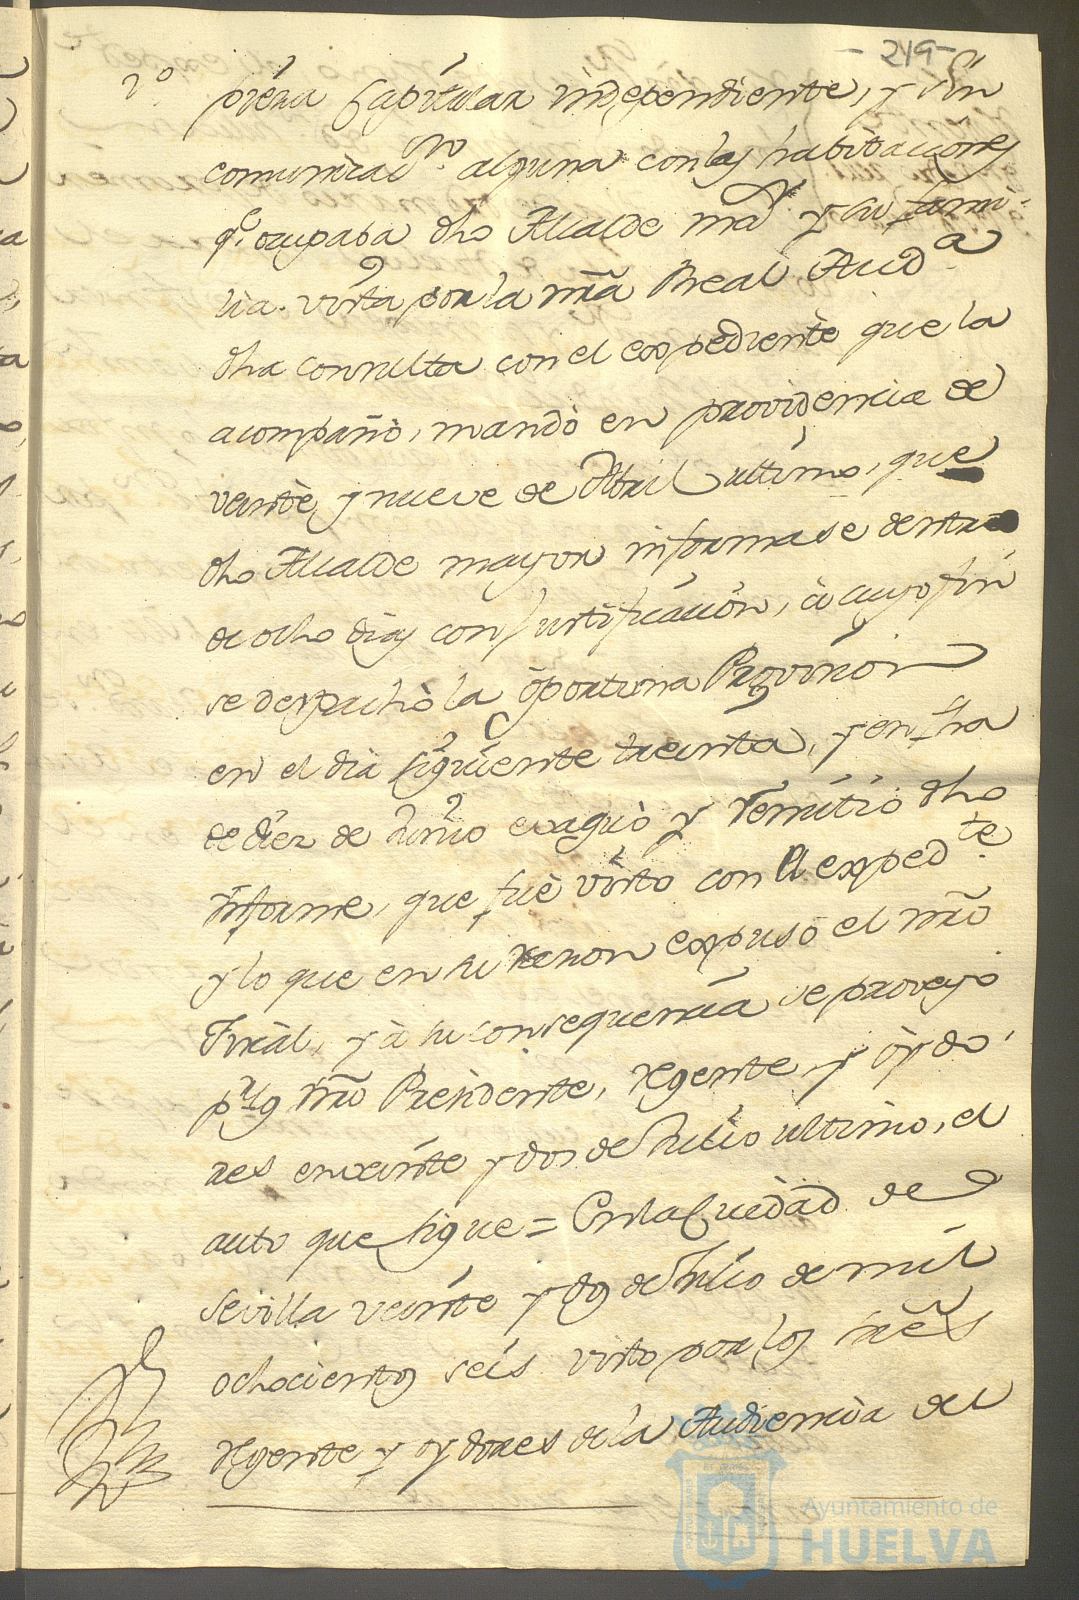 -219-
2º
pieza Capitular independiente, y sin
comunicacⁿ. alguna con las habitaciones
qᵉ. ocupaba dho Alcalde maʳ. y su fami-
lia. vista por la nrã Real Audᵃ.
dha consulta con el expediente que la
acompañò, mandò en providencia de
veinte y nueve de Abril ultimo, que
dho Alcalde mayor informase dentro
de ocho dias con justificacion, à cuyo fin
se despachò la oportuna Provision
en el dia siguiente treinta, y en fha
de diez de Junio evaquò y remitiò dho
Informe, que fuè visto con el expedᵗᵉ.
y lo que en su razon expuso el nrõ
Fiscal, y à su consequencia se proveyò
pʳ. los nrõ Presidente, regente y oydo-
res en veinte y dos de Julio ultimo, el
auto que sigue = En la Ciudad de
Sevilla veinte y dos de Julio de mil
ochocientos seis visto por los sres
regente y oydores de la Audiencia del
Ayuntamiento de
HUELVA